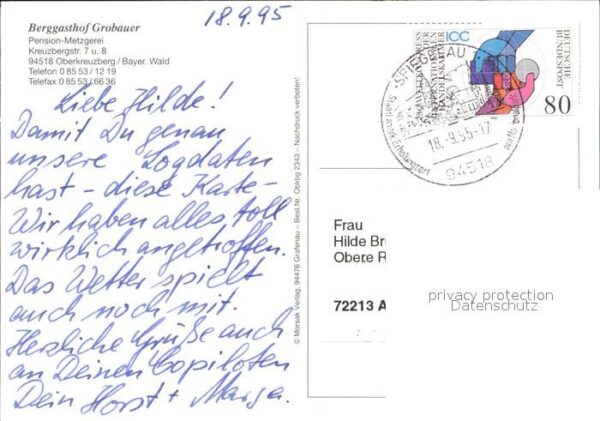 18.9.95
Berggasthof Grobauer
Pension-Metzgerei
Kreuzbergstr. 7 u. 8
94518 Oberkreuzberg / Bayer. Wald
Telefon 0 85 53 / 12 19
Telefax 0 85 53 / 66 36
Liebe Hilde!
Damit Du genau
unsere Logdaten
hast - diese Karte -
Wir haben alles toll
wirklich angetroffen.
Das Wetter spielt
auch noch mit.
Herzliche Grüße auch
an Deinen Copiloten
Dein Horst + Marga.
© Morsak Verlag, 94476 Grafenau – Best.Nr. Obktbg 2343 – Nachdruck verboten!
ICC
DEUTSCHE
BUNDESPOST
80
SPIEGELAU
Staatl. anerk. Erholungsort
18.-9.95-17
94518
Frau
Hilde
Obere
72213
privacy protection
Datenschutz